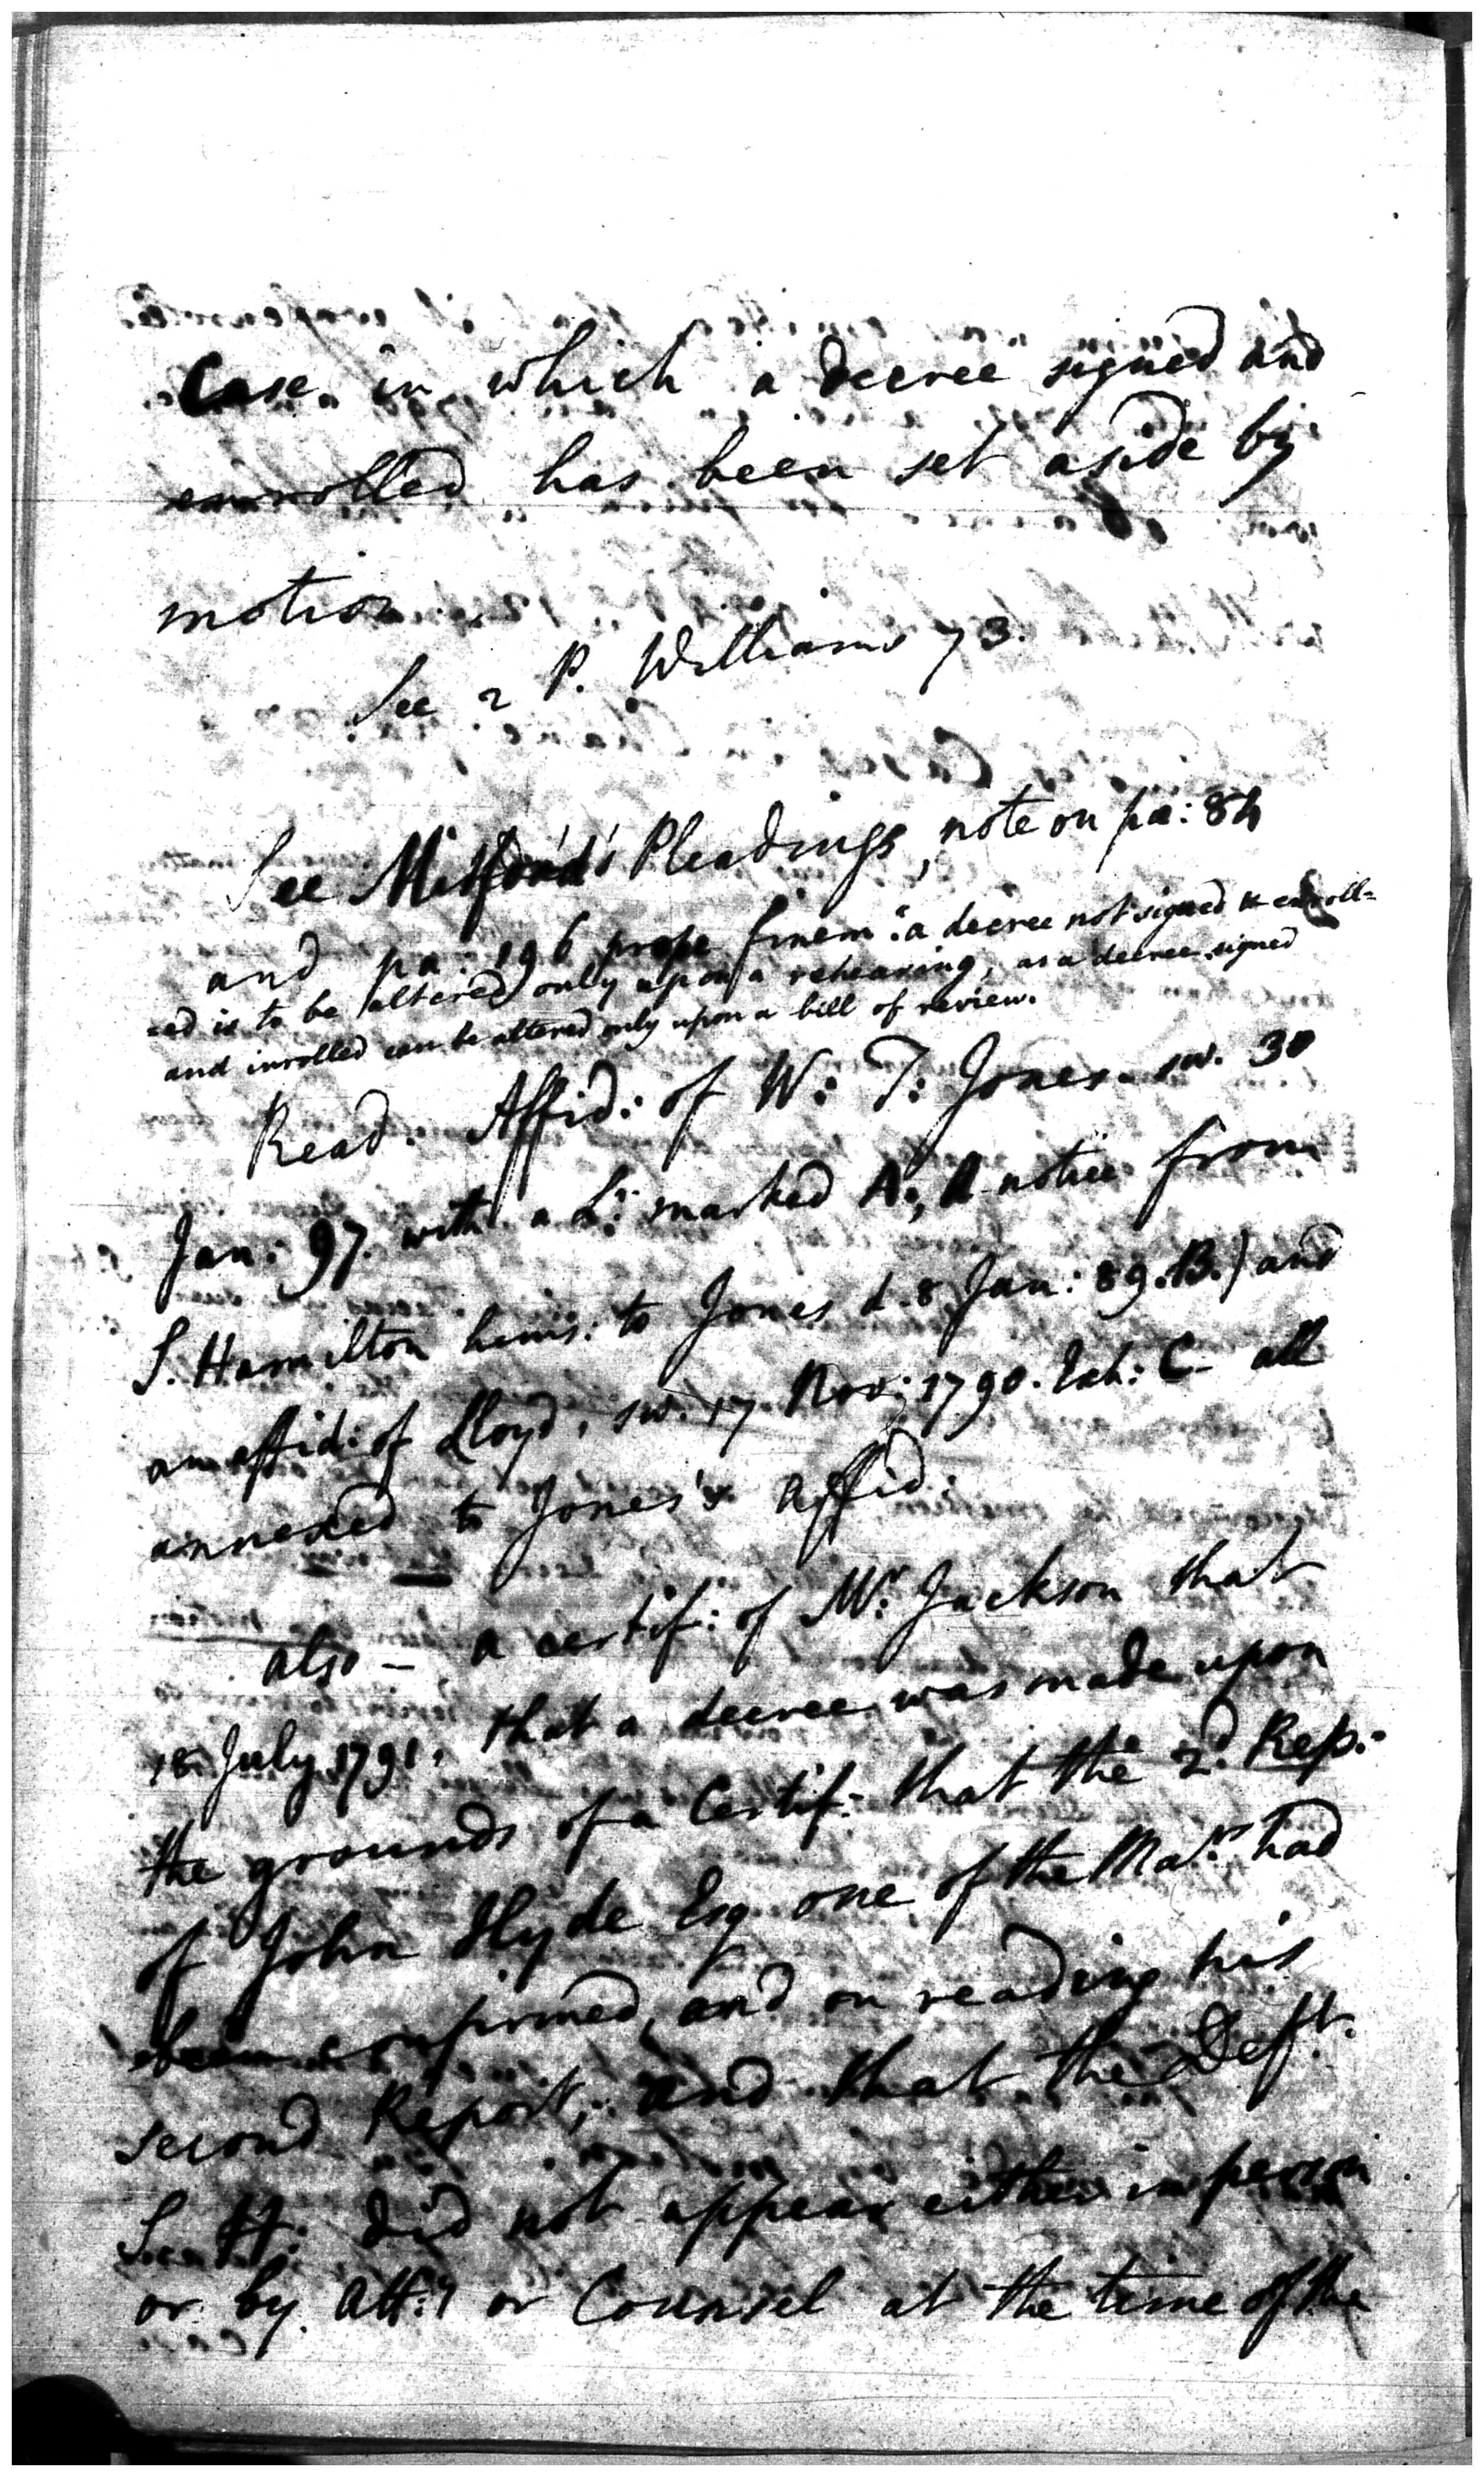 Case in which a decree signed and
enrolled has been set aside by
motion.
See 2 P. Williams 73.
See Mitford's Pleadings, note on pa: 84
and pa: 196 prope finem "a decree not signed & enroll=
=ed is to be altered only upon a rehearing, as a decree signed
and inrolled can be altered only upon a bill of review.
Read. Affid: of W: T: Jones. sw. 30
Jan: 97. with a Lr: marked A:, A notice from
S. Hamilton hims: to Jones d. 8 Jan: 89. B.) and
an affid: of Lloyd, sw. 17 Nov: 1790. Exh: C - all
annexed to Jones's affid:
also - a certif: of Mr. Jackson that
18 July 1791, that a decree was made upon
the grounds of a Certif: that the 2d. Rep:
of John Hyde Esq one of the Mars. had
been confirmed, and on reading his
second Report; and that the Deft.
S: H: did not appear either in person
or by Atty: or Counsel at the time of the